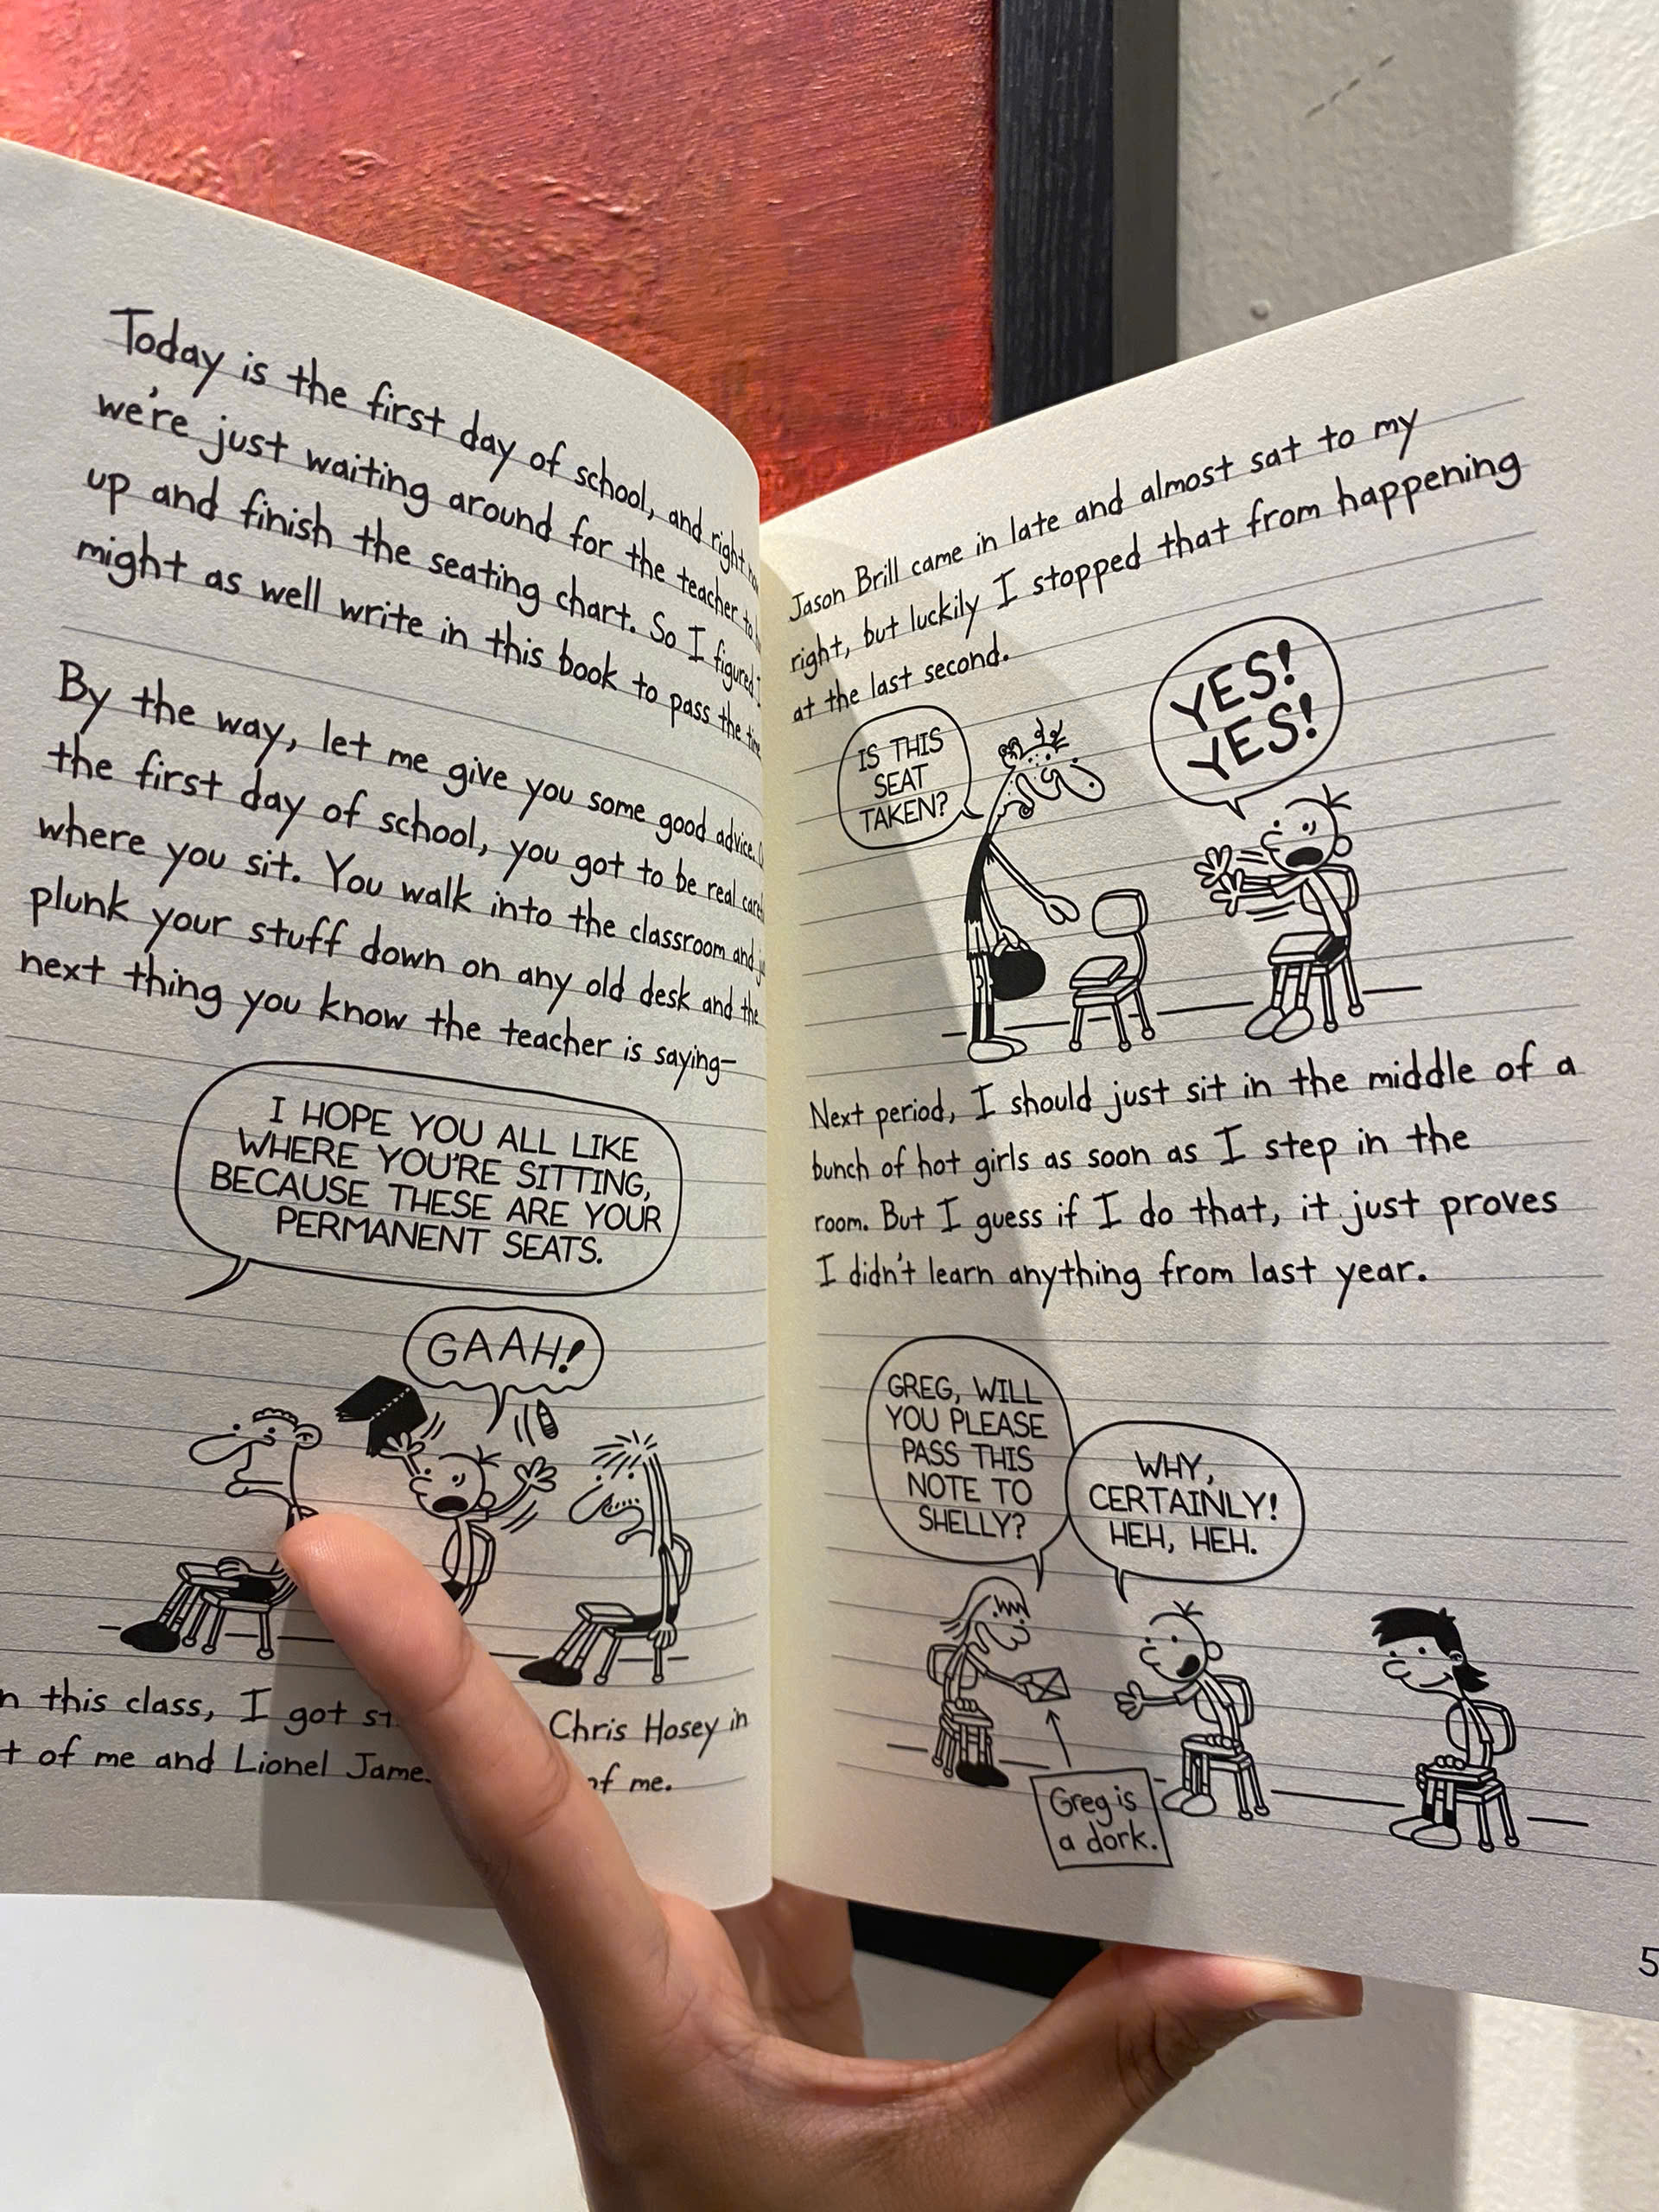 Today is the first day of school, and right
we're just waiting around for the teacher to
up and finish the seating chart. So I figured I
might as well write in this book to pass the time
By the way, let me give you some good advice.
the first day of school, you got to be real
where you sit. You walk into the classroom and
plunk your stuff down on any old desk and the
next thing you know the teacher is saying-
I HOPE YOU ALL LIKE
WHERE YOU'RE SITTING,
BECAUSE THESE ARE YOUR
PERMANENT SEATS.
GAAH!
this class, I got Chris Hosey in
of me and Lionel of me.
Jason Brill came in late and almost sat to my
right, but luckily I stopped that from happening
at the last second.
IS THIS
SEAT
TAKEN?
YES!
YES!
Next period, I should just sit in the middle of a
bunch of hot girls as soon as I step in the
room. But I guess if I do that, it just proves
I didn't learn anything from last year.
GREG, WILL
YOU PLEASE
PASS THIS
NOTE TO
SHELLY?
WHY,
CERTAINLY!
HEH, HEH.
Greg is
a dork.
5